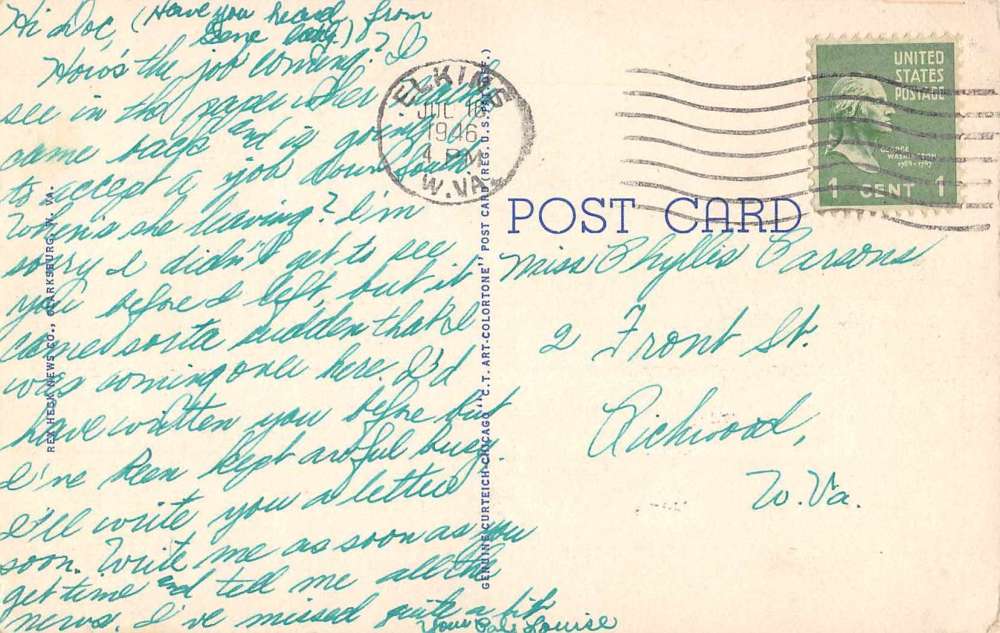 Hi Doc, (Have you heard from
Gene lately)?
How's the job coming? I
see in the paper where
came back and is going
to accept a job down South.
When's she leaving? I'm
sorry I didn't get to see
you before I left, but it
came sorta sudden that I
was coming over here. I'd
have written you before but
I've been kept awful busy.
I'll write you a letter
soon. Write me as soon as you
get time and tell me all the
news. I've missed quite a bit.
Your Pal, Louise
REX HECK NEWS CO., CLARKSBURG, W. VA.
GENUINE CURTEICH-CHICAGO "C.T. ART-COLORTONE" POST CARD (REG. U.S. PAT. OFF.)
ELKINS
JUL 16
1946
4 PM
W.VA.
UNITED
STATES
POSTAGE
GEORGE
WASHINGTON
1789-1797
1 CENT 1
POST CARD
Miss Phyllis Parsons
2 Front St.
Richwood,
W. Va.